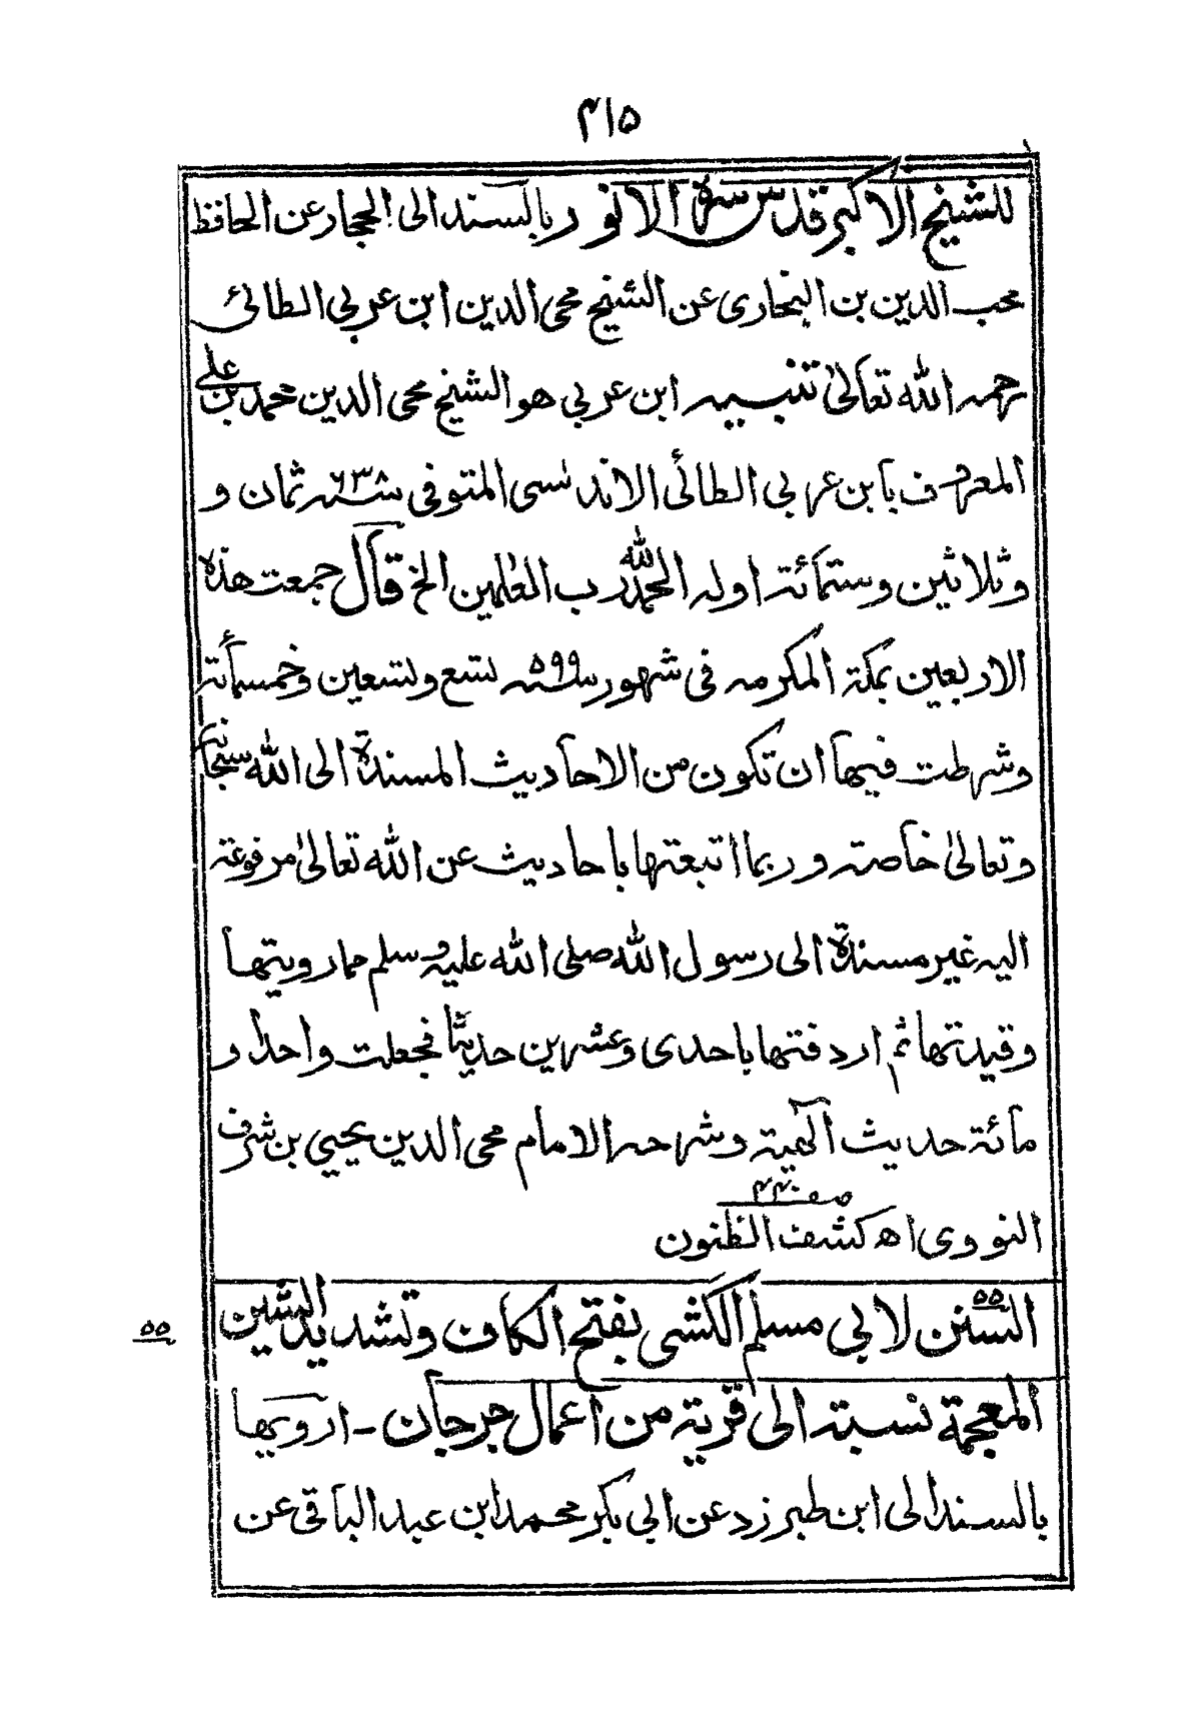 ۴۱۵
للشيخ الاكبر قدس سره الانور بالسند الى الحجار عن الحافظ
محب الدين بن النجارى عن الشيخ محى الدين ابن عربي الطائى
رحمه الله تعالىٰ تنبيه ابن عربي هو الشيخ محى الدين محمد بن على
المعروف بابن عربي الطائى الاندلسى المتوفى سنه ٦٣٨ ثمان و
وثلاثين وستمائة اوله الحمد لله رب العٰلمين الخ قال جمعت هذه
الاربعين بمكة المكرمه فى شهور سنه ٥٩٩ تسع وتسعين وخمسمأئة
وشرطت فيها ان تكون من الاحاديث المسندة الى الله سبحانه
وتعالىٰ خاصة وربما اتبعتها باحاديث عن الله تعالىٰ مرفوعة
اليه غير مسندة الى رسول الله صلى الله عليه وسلم مما رويتها
وقيدتها ثم اردفتها باحدى وعشرين حديثًا فجعلت واحدا و
مائة حديث الٰهية وشرحه الامام محى الدين يحيي بن شرف
النووى اھ كشف الظنون
السنن لابي مسلم الكشى بفتح الكاف وتشديد الشين
٥٥
المعجمة نسبة الى قرية من اعمال جرجان ـ ارويها
بالسند الى ابن طبرزد عن ابي بكر محمد ابن عبد الباقى عن